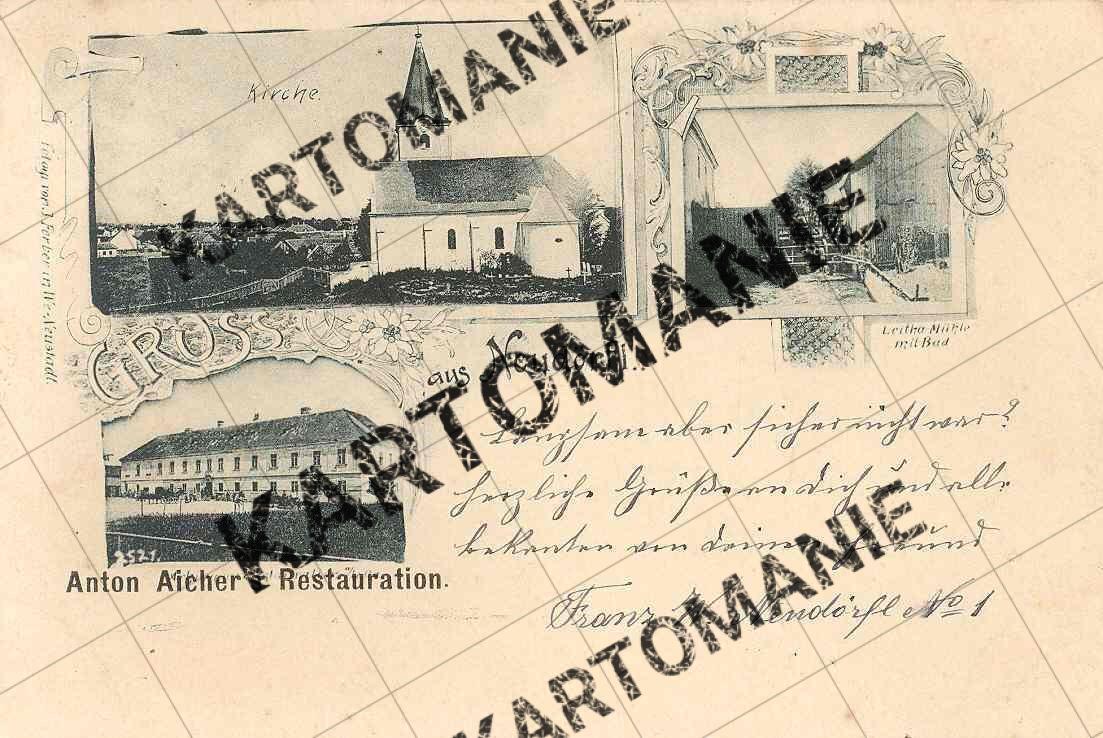 Kirche.
Verlag von J. Farber in Wr. Neustadt.
Leitha Mühle
mit Bad
GRUSS
aus Neudörfl.
Langsam aber sicher nicht war?
herzliche Grüße an dich und alle
bekanten von deinem Freund
Franz Neudörfl No 1
2521.
Anton Aicher's Restauration.
KARTOMANIE
KARTOMANIE
KARTOMANIE
KARTOMANIE